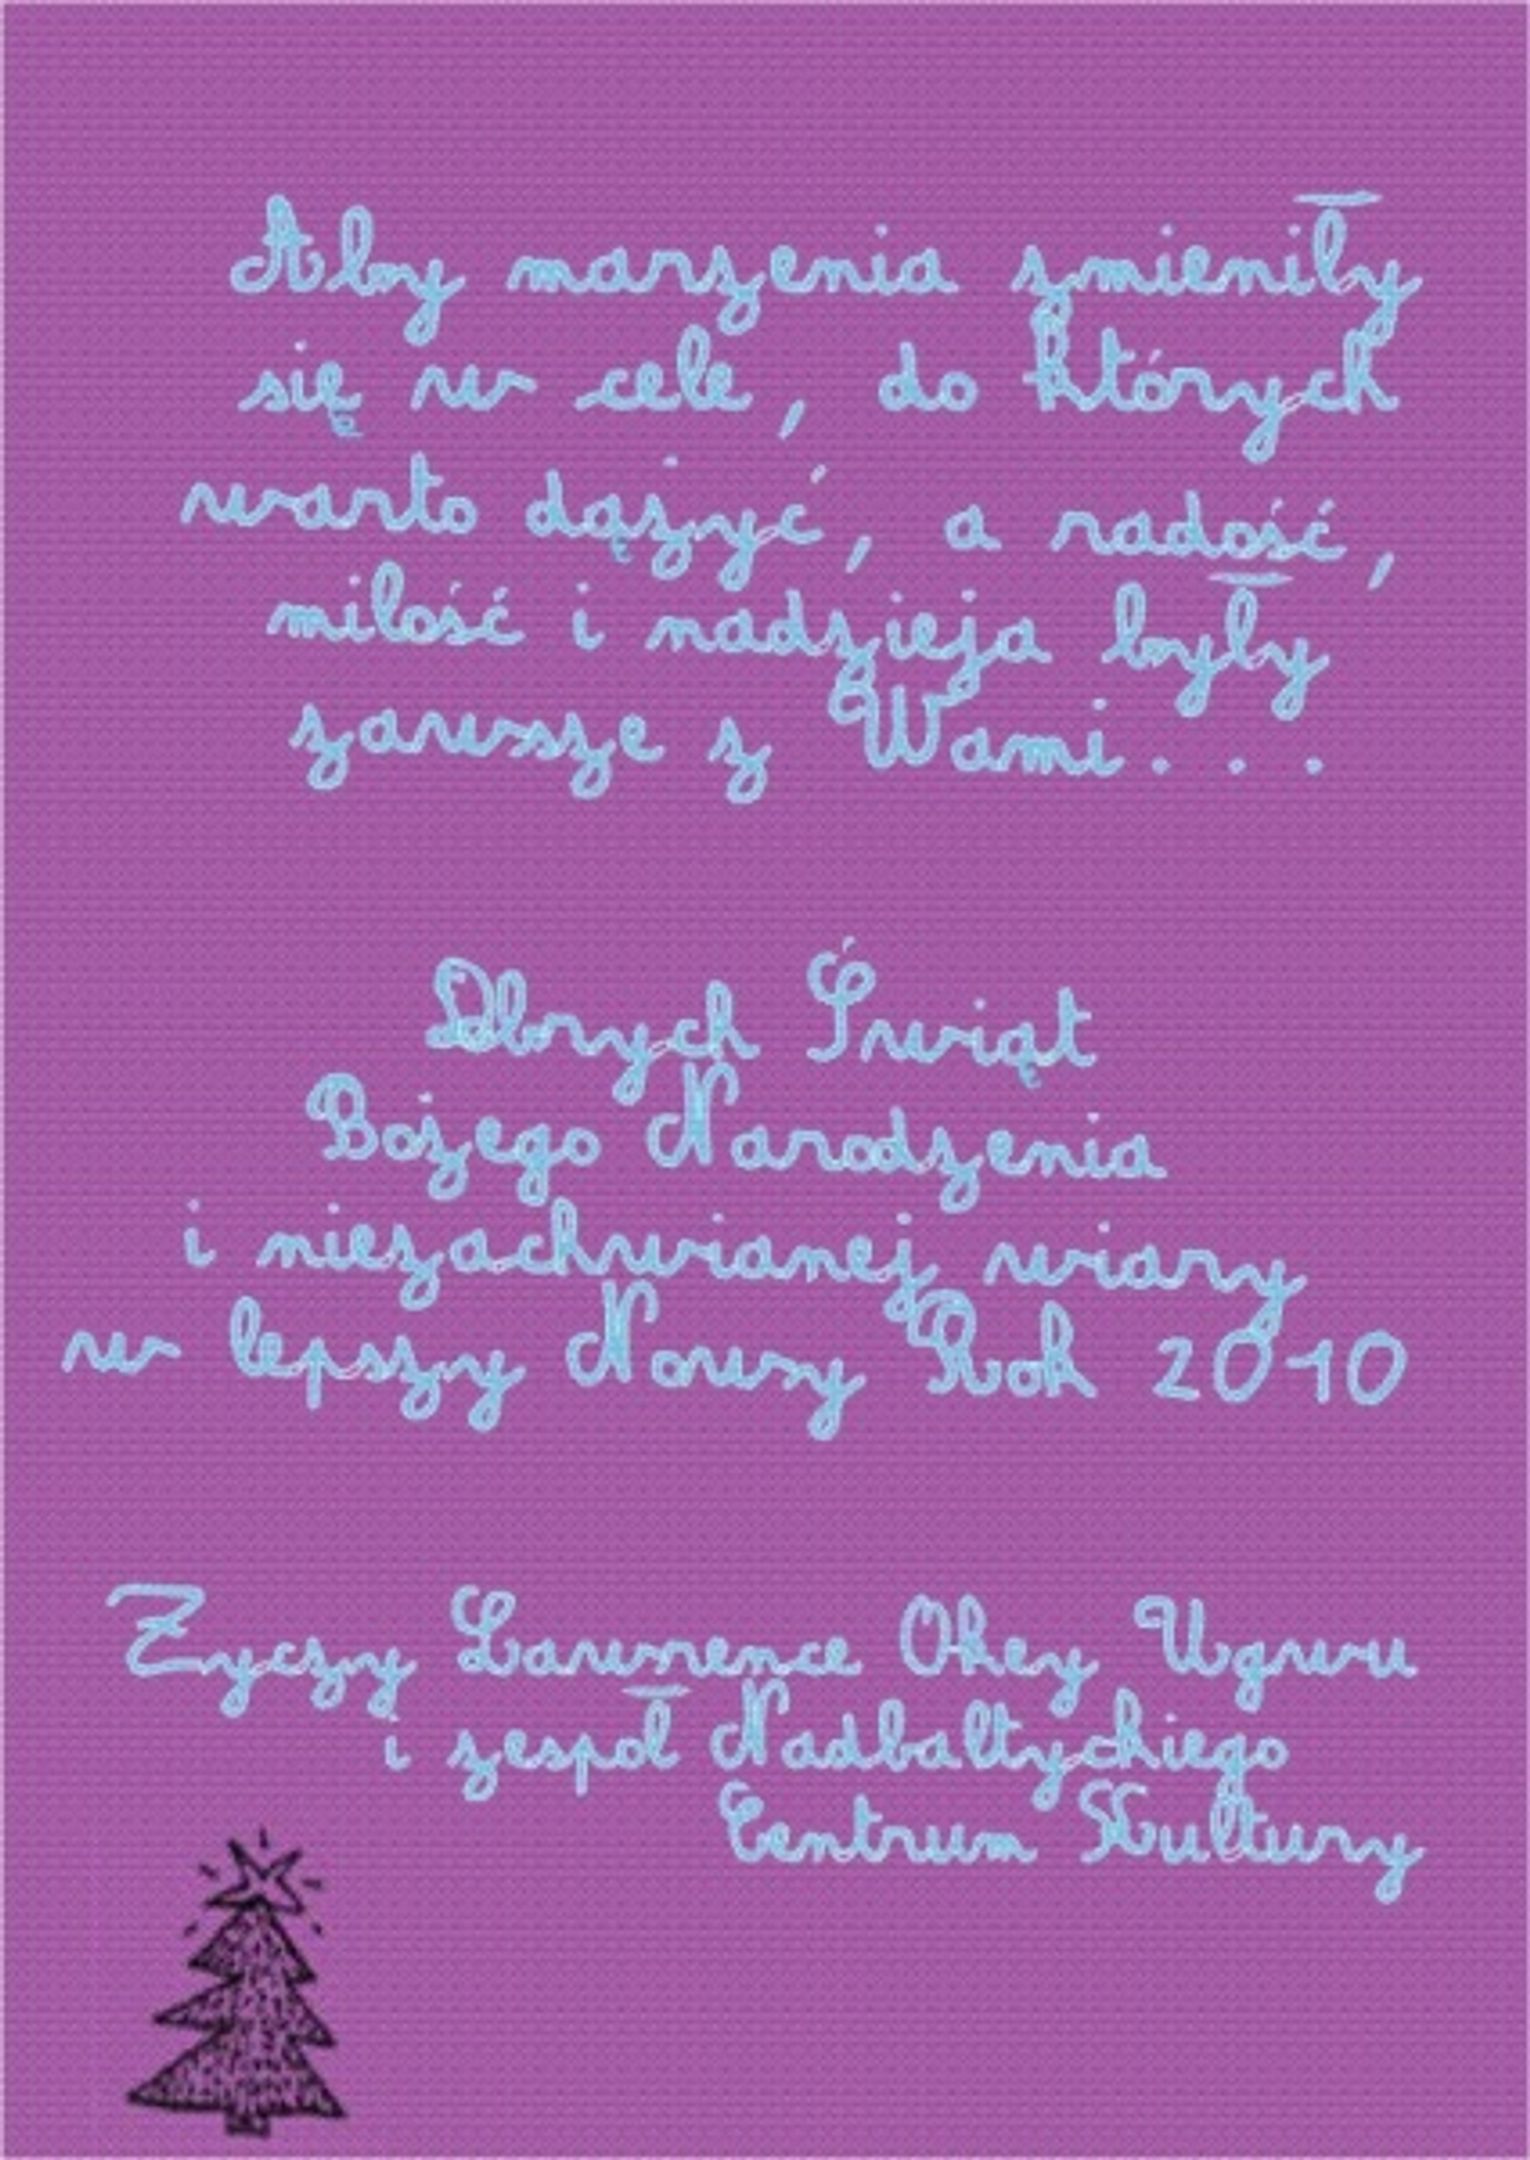 Aby marzenia zmieniły
się w cele, do których
warto dążyć, a radość,
milość i nadzieja były
zawsze z Wami...
Dbrych Świąt
Bożego Narodzenia
i niezachwianej wiary
w lepszy Nowy Rok 2010
Życzy Lawrence Okey Ugwu
i zespół Nadbałtyckiego
Centrum Kultury